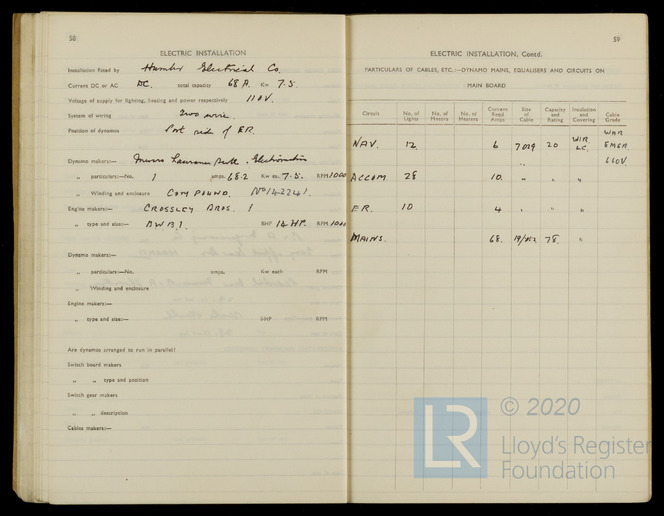 58
ELECTRIC INSTALLATION
Installation fitted by Humber Electrical Co.
Current DC or AC DC. total capacity 68 A. Kw 7.5.
Voltage of supply for lighting, heating and power respectively 110V.
System of wiring Two wire.
Position of dynamos Port side of ER.
Dynamo makers:—
„ particulars:—No. 1 amps. 68.2 Kw ea. 7.5. RPM 1000
„ Winding and enclosure COMPOUND. No 142241.
Engine makers:— CROSSLEY BROS. 1
„ type and size:— BWB1. BHP 14 HP. RPM 1000
Dynamo makers:—
„ particulars:—No. amps. Kw each RPM
„ Winding and enclosure
Engine makers:—
„ type and size:— BHP RPM
Are dynamos arranged to run in parallel?
Switch board makers
„ „ type and position
Switch gear makers
„ „ description
Cables makers:—
59
ELECTRIC INSTALLATION, Contd.
PARTICULARS OF CABLES, ETC.:—DYNAMO MAINS, EQUALISERS AND CIRCUITS ON
MAIN BOARD
Circuit No. of Lights No. of Motors No. of Heaters Current Read Amps Size of Cable Capacity and Rating Insulation and Covering Cable Grade
NAV. 12 6 7029 20 VIR LC. WAR EMER. 660V
ACCOM. 28 10. „ „ „
ER. 10 4 „ „ „
MAINS. 68. 19/052 78. „
LR © 2020
Lloyd's Register
Foundation